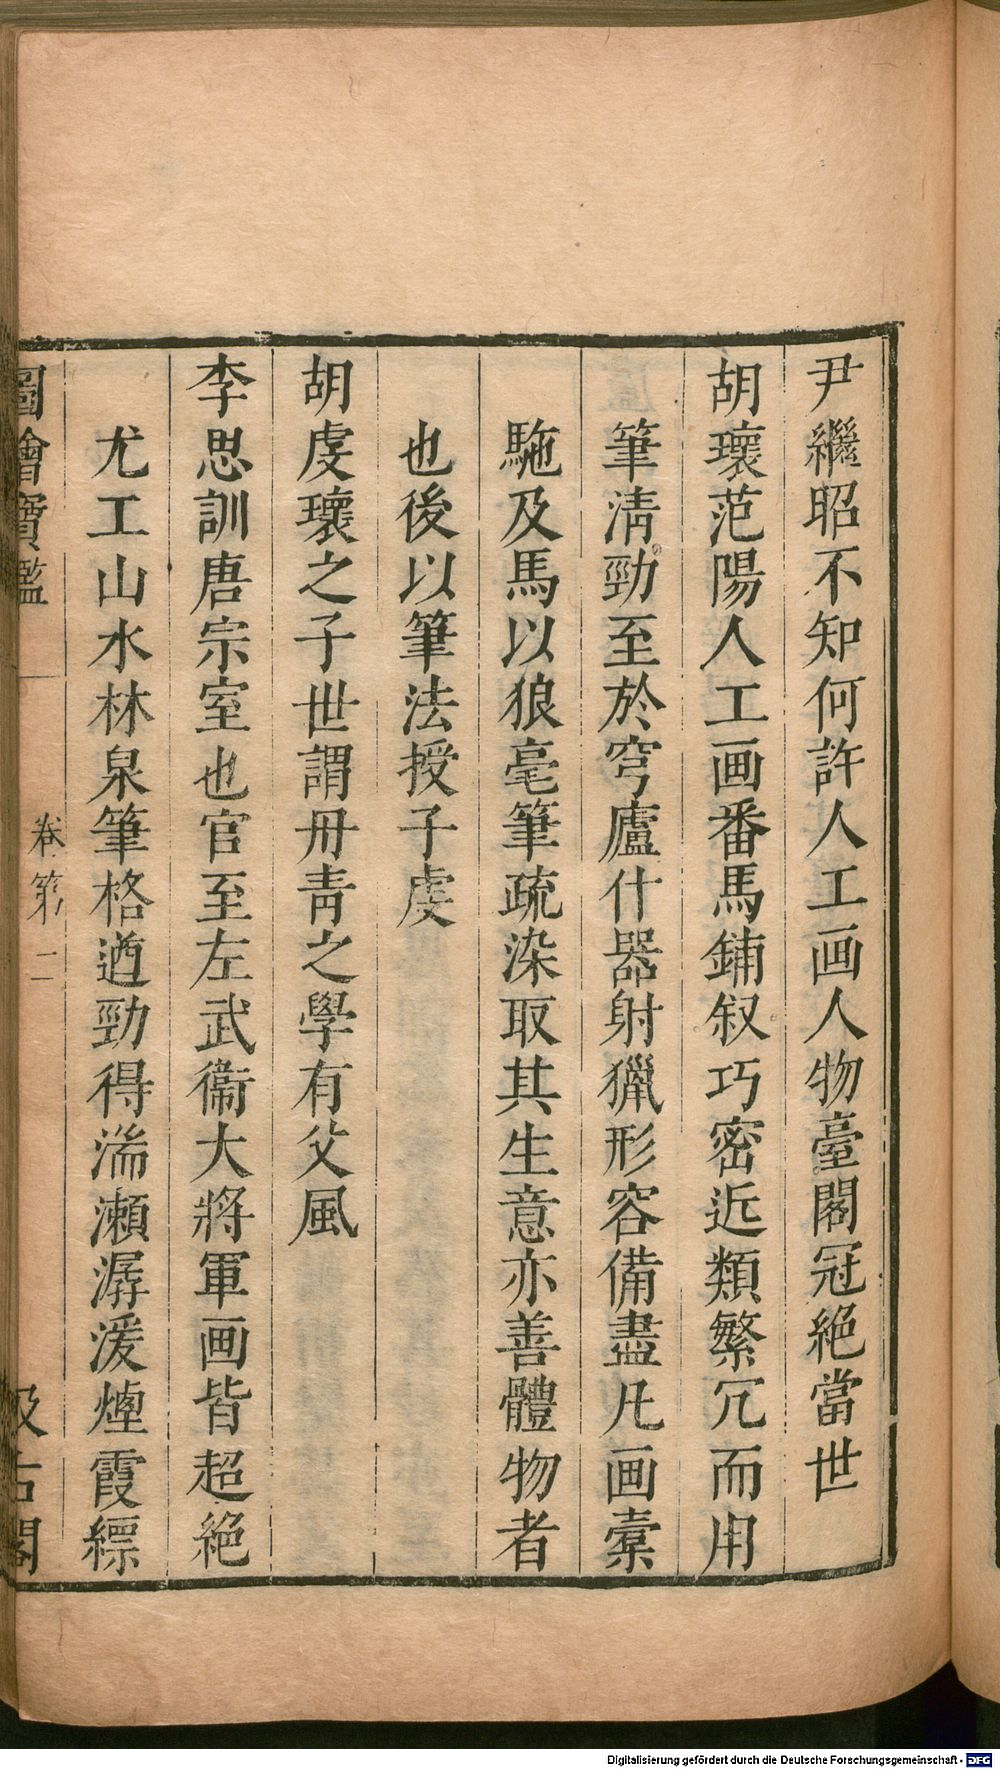 尹繼昭不知何許人工画人物臺閣冠絕當世
胡瓌范陽人工画番馬鋪叙巧密近類繁冗而用
筆淸勁至於穹廬什器射獵形容備盡凡画橐
駞及馬以狼毫筆疏染取其生意亦善體物者
也後以筆法授子虔
胡虔瓌之子世謂丹青之學有父風
李思訓唐宗室也官至左武衞大將軍画皆超絕
尤工山水林泉筆格遒勁得湍瀨潺湲煙霞縹
圖繪寶鑑 卷第二 汲古閣
Digitalisierung gefördert durch die Deutsche Forschungsgemeinschaft - DFG